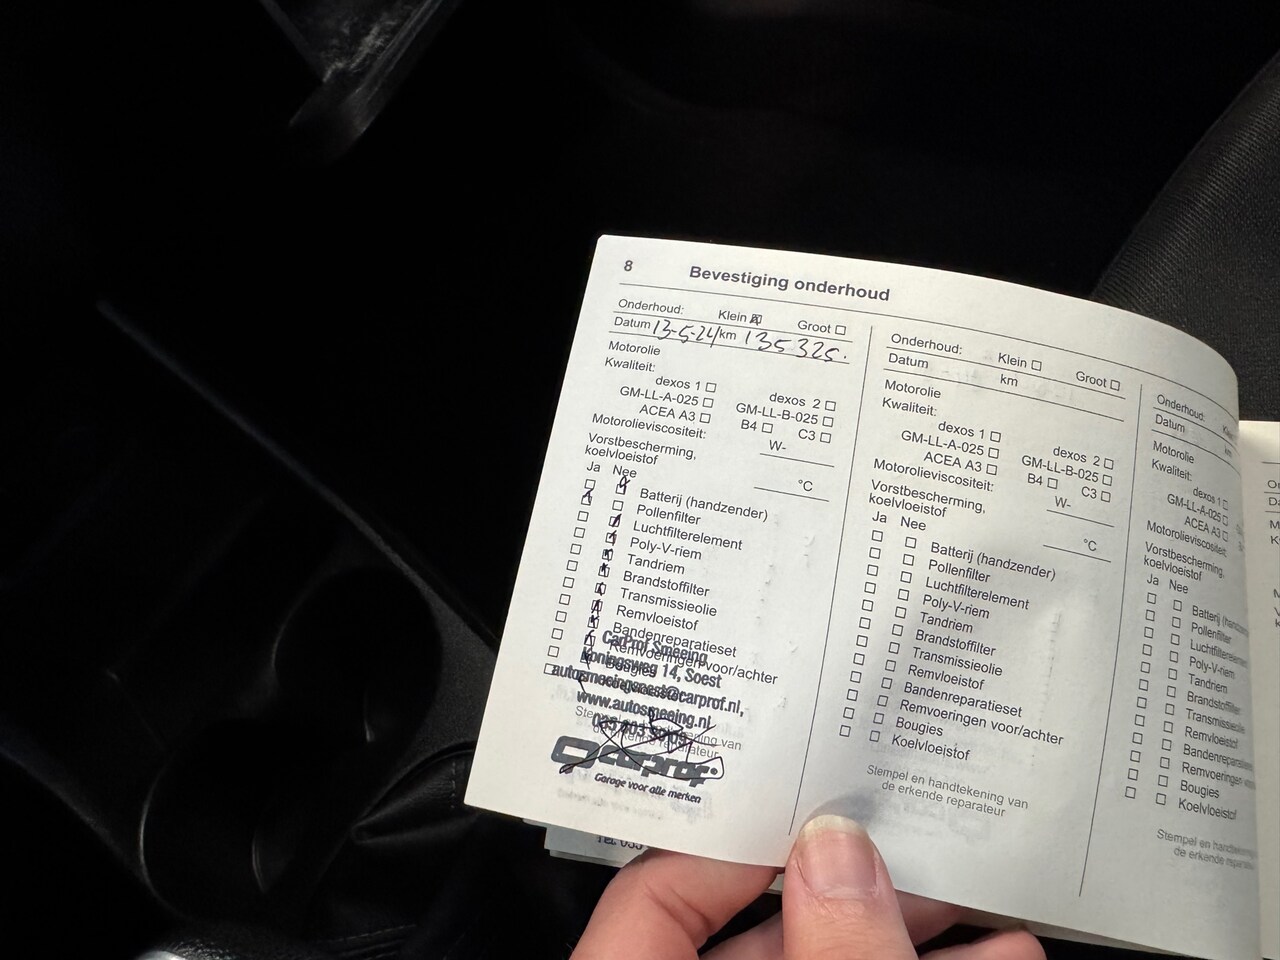 8 Bevestiging onderhoud
Onderhoud: Klein Groot
Datum 13-5-24 km 135325.
Motorolie
Kwaliteit:
dexos 1 dexos 2
GM-LL-A-025 GM-LL-B-025
ACEA A3 B4 C3
Motorolieviscositeit: W-
Vorstbescherming,
koelvloeistof °C
Ja Nee
Batterij (handzender)
Pollenfilter
Luchtfilterelement
Poly-V-riem
Tandriem
Brandstoffilter
Transmissieolie
Remvloeistof
Bandenreparatieset
Remvoeringen voor/achter
Bougies
CarProf Smeeing
Koningsweg 14, Soest
autosmeeingsoest@carprof.nl,
www.autosmeeing.nl
Stempel en handtekening van
de erkende reparateur
carprof
Garage voor alle merken
Onderhoud: Klein Groot
Datum km
Motorolie
Kwaliteit:
dexos 1 dexos 2
GM-LL-A-025 GM-LL-B-025
ACEA A3 B4 C3
Motorolieviscositeit: W-
Vorstbescherming,
koelvloeistof °C
Ja Nee
Batterij (handzender)
Pollenfilter
Luchtfilterelement
Poly-V-riem
Tandriem
Brandstoffilter
Transmissieolie
Remvloeistof
Bandenreparatieset
Remvoeringen voor/achter
Bougies
Koelvloeistof
Stempel en handtekening van
de erkende reparateur
Onderhoud:
Datum
Motorolie
Kwaliteit:
dexos 1
GM-LL-A-025
ACEA A3
Motorolieviscositeit:
Vorstbescherming,
koelvloeistof
Ja Nee
Batterij
Pollenfilter
Luchtfilterelement
Poly-V-riem
Tandriem
Brandstoffilter
Transmissieolie
Remvloeistof
Bandenreparatieset
Remvoeringen
Bougies
Koelvloeistof
Stempel en
de erkende
TEL 035